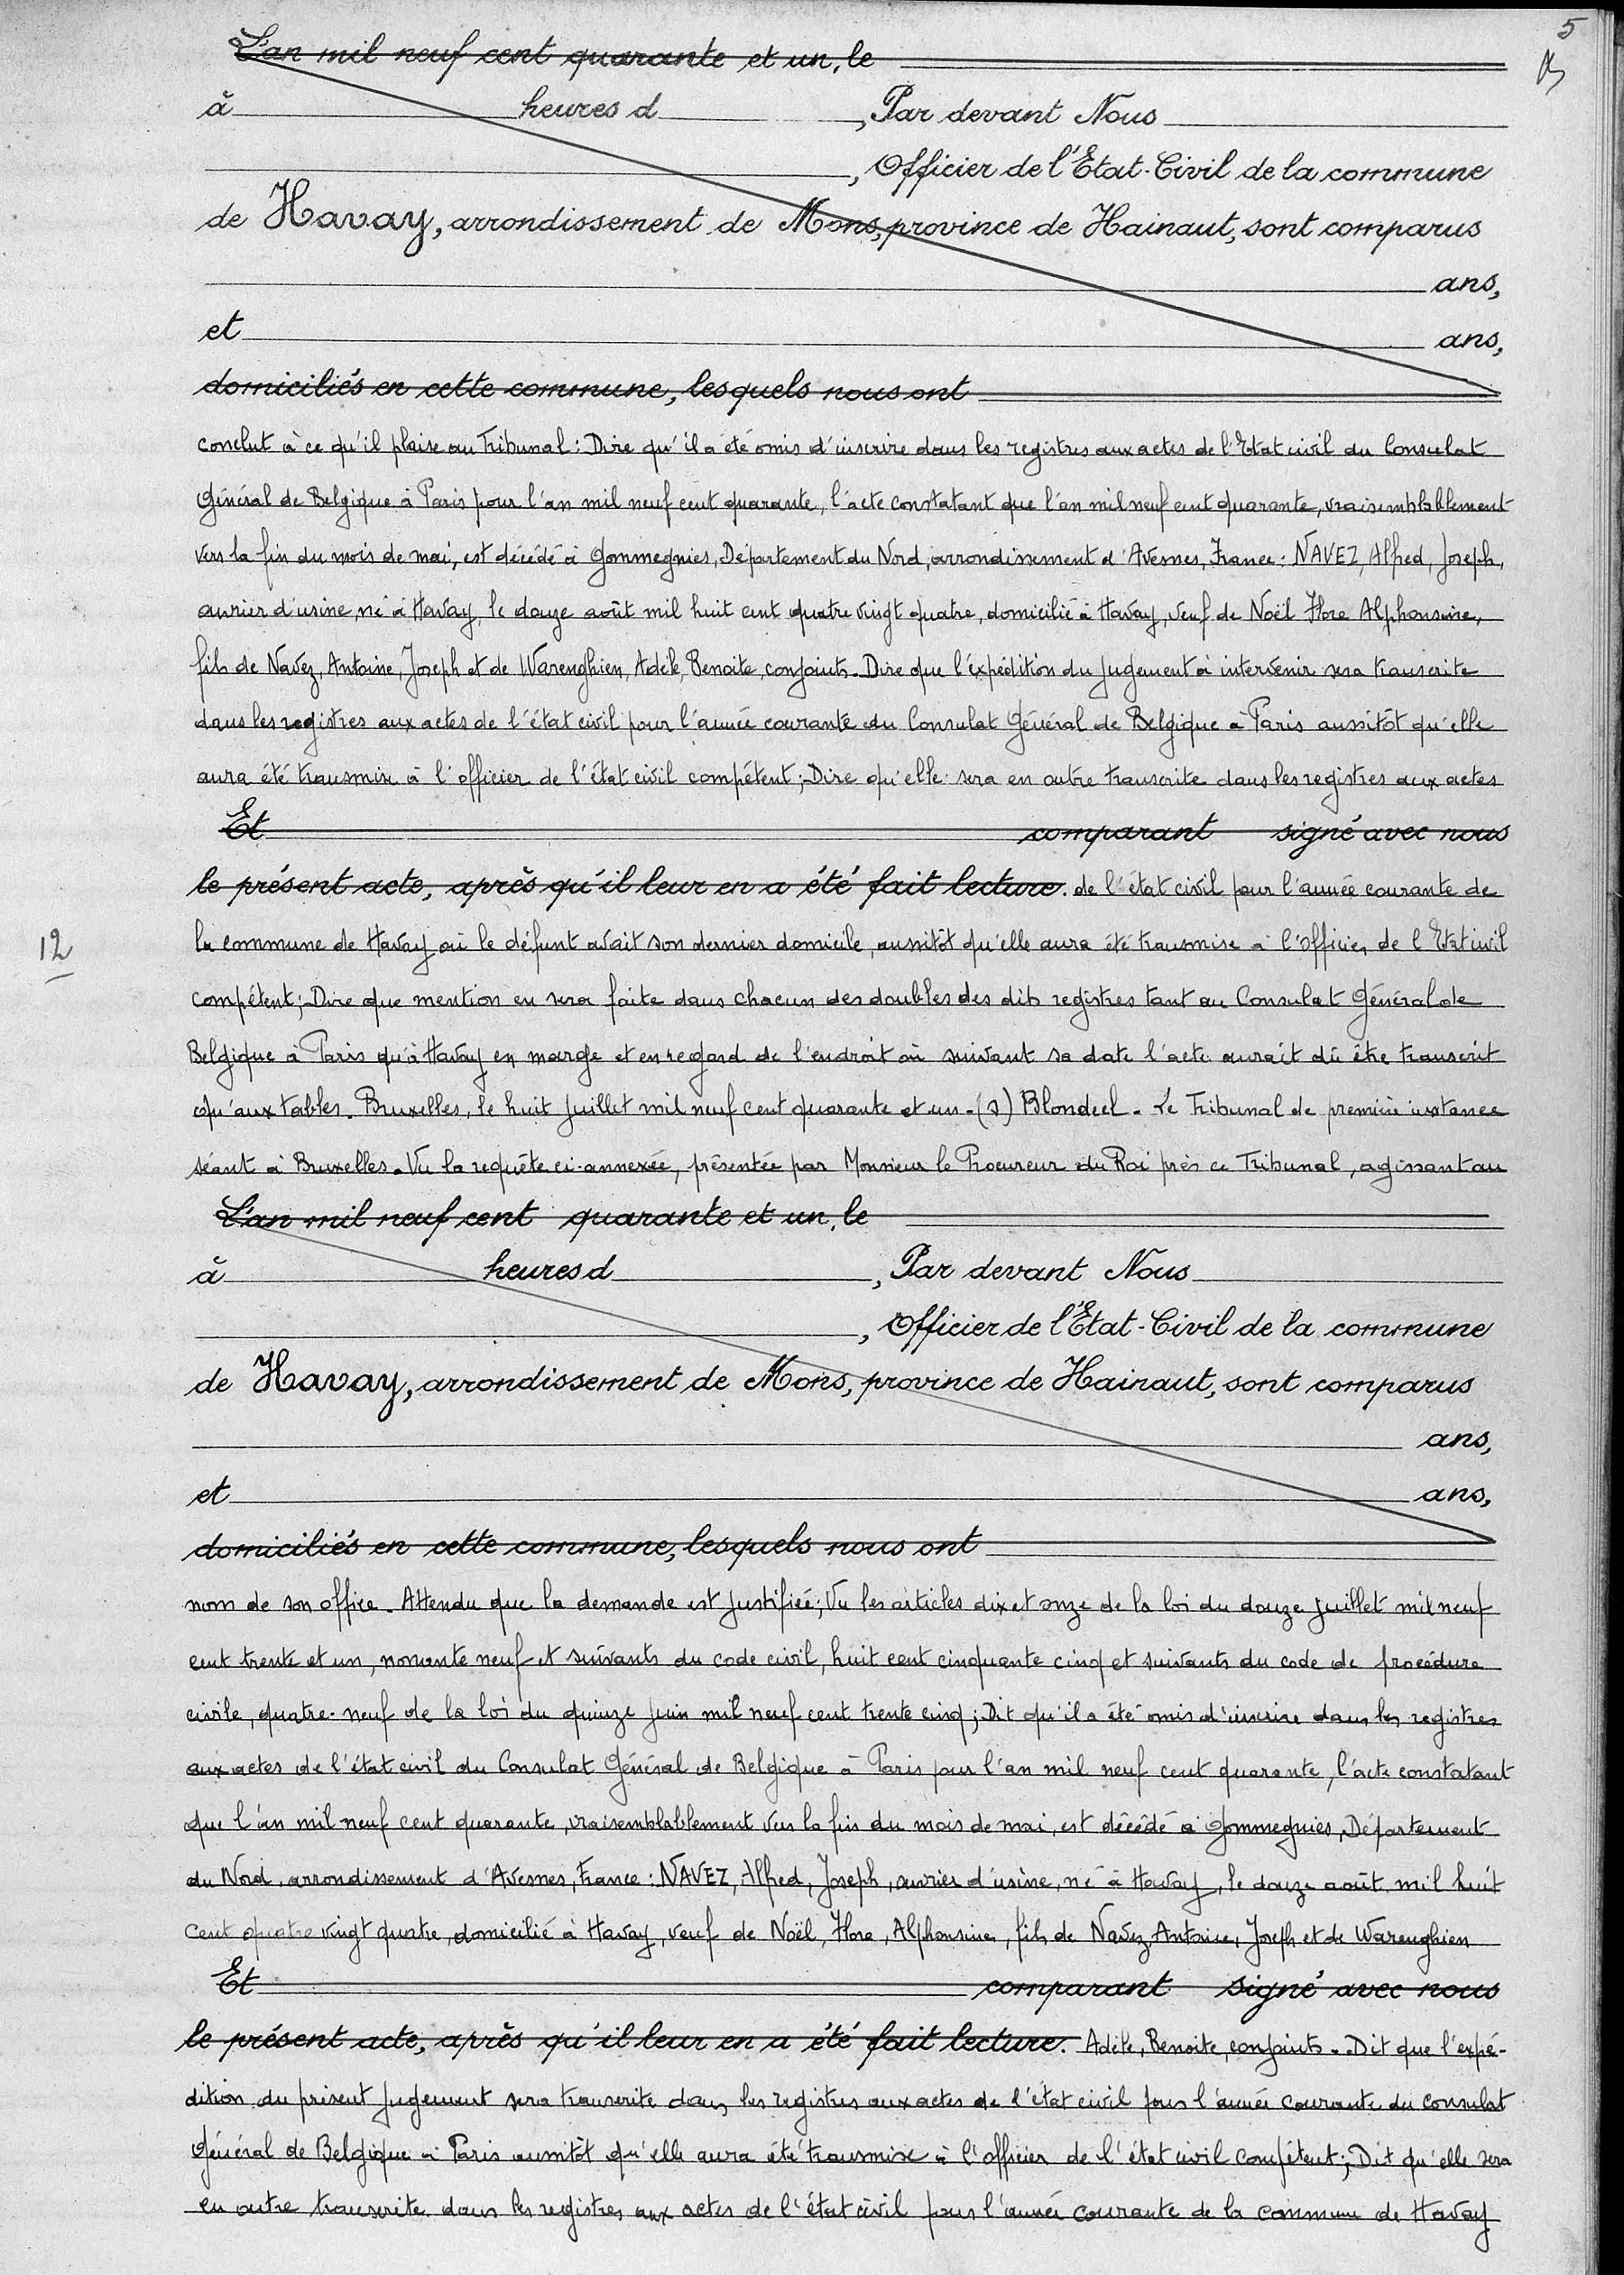 5
L'an mil neuf cent quarante et un, le
à heures d , Par devant Nous
, Officier de l'Etat-Civil de la commune
de Havay, arrondissement de Mons, province de Hainaut, sont comparus
ans,
et ans,
domiciliés en cette commune, lesquels nous ont
conclut à ce qu'il plaise au Tribunal : Dire qu'il a été omis d'inscrire dans les registres aux actes de l'Etat civil du Consulat
Général de Belgique à Paris pour l'an mil neuf cent quarante, l'acte constatant que l'an mil neuf cent quarante, vraisemblablement
vers la fin du mois de mai, est décédé à Gommegnies, Département du Nord, arrondissement d'Avesnes, France : NAVEZ, Alfred, Joseph,
ouvrier d'usine, né à Havay, le douze août mil huit cent quatre vingt quatre, domicilié à Havay, veuf de Noël Flore Alphonsine,
fils de Navez, Antoine, Joseph et de Warenghien, Adèle, Benoite, conjoints. Dire que l'expédition du jugement à intervenir sera transcrite
dans les registres aux actes de l'état civil pour l'année courante du Consulat Général de Belgique à Paris aussitôt qu'elle
aura été transmise à l'officier de l'état civil compétent ; Dire qu'elle sera en outre transcrite dans les registres aux actes
Et comparant signé avec nous
le présent acte, après qu'il leur en a été fait lecture. de l'état civil pour l'année courante de
12
la commune de Havay où le défunt avait son dernier domicile, aussitôt qu'elle aura été transmise à l'officier de l'Etat civil
compétent ; Dire que mention en sera faite dans chacun des doubles des dits registres tant au Consulat Général de
Belgique à Paris qu'à Havay en marge et en regard de l'endroit où suivant sa date l'acte aurait dû être transcrit
qu'aux tables. Bruxelles, le huit juillet mil neuf cent quarante et un - (s) Blondeel. Le Tribunal de première instance
séant à Bruxelles. Vu la requête ci-annexée, présentée par Monsieur le Procureur du Roi près ce Tribunal, agissant au
L'an mil neuf cent quarante et un, le
à heures d , Par devant Nous
, Officier de l'Etat-Civil de la commune
de Havay, arrondissement de Mons, province de Hainaut, sont comparus
ans,
et ans,
domiciliés en cette commune, lesquels nous ont
nom de son office. Attendu que la demande est justifiée ; Vu les articles dix et onze de la loi du douze juillet mil neuf
cent trente et un, nonante neuf et suivants du code civil, huit cent cinquante cinq et suivants du code de procédure
civile, quatre-neuf de la loi du quinze juin mil neuf cent trente cinq ; Dit qu'il a été omis d'inscrire dans les registres
aux actes de l'état civil du Consulat Général de Belgique à Paris pour l'an mil neuf cent quarante, l'acte constatant
que l'an mil neuf cent quarante, vraisemblablement vers la fin du mois de mai, est décédé à Gommegnies, Département
du Nord, arrondissement d'Avesnes, France : NAVEZ, Alfred, Joseph, ouvrier d'usine, né à Havay, le douze août mil huit
cent quatre vingt quatre, domicilié à Havay, veuf de Noël, Flore, Alphonsine, fils de Navez, Antoine, Joseph et de Warenghien
Et comparant signé avec nous
le présent acte, après qu'il leur en a été fait lecture. Adèle, Benoite, conjoints. Dit que l'expé-
dition du présent jugement sera transcrite dans les registres aux actes de l'état civil pour l'année courante du consulat
Général de Belgique à Paris aussitôt qu'elle aura été transmise à l'officier de l'état civil compétent ; Dit qu'elle sera
en outre transcrite dans les registres aux actes de l'état civil pour l'année courante de la commune de Havay